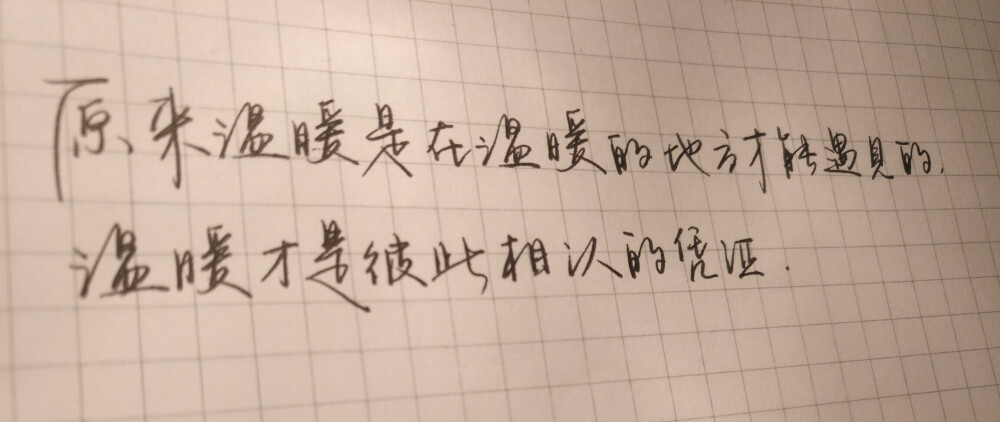 原来温暖是在温暖的地方才能遇见的.
温暖才是彼此相认的凭证.